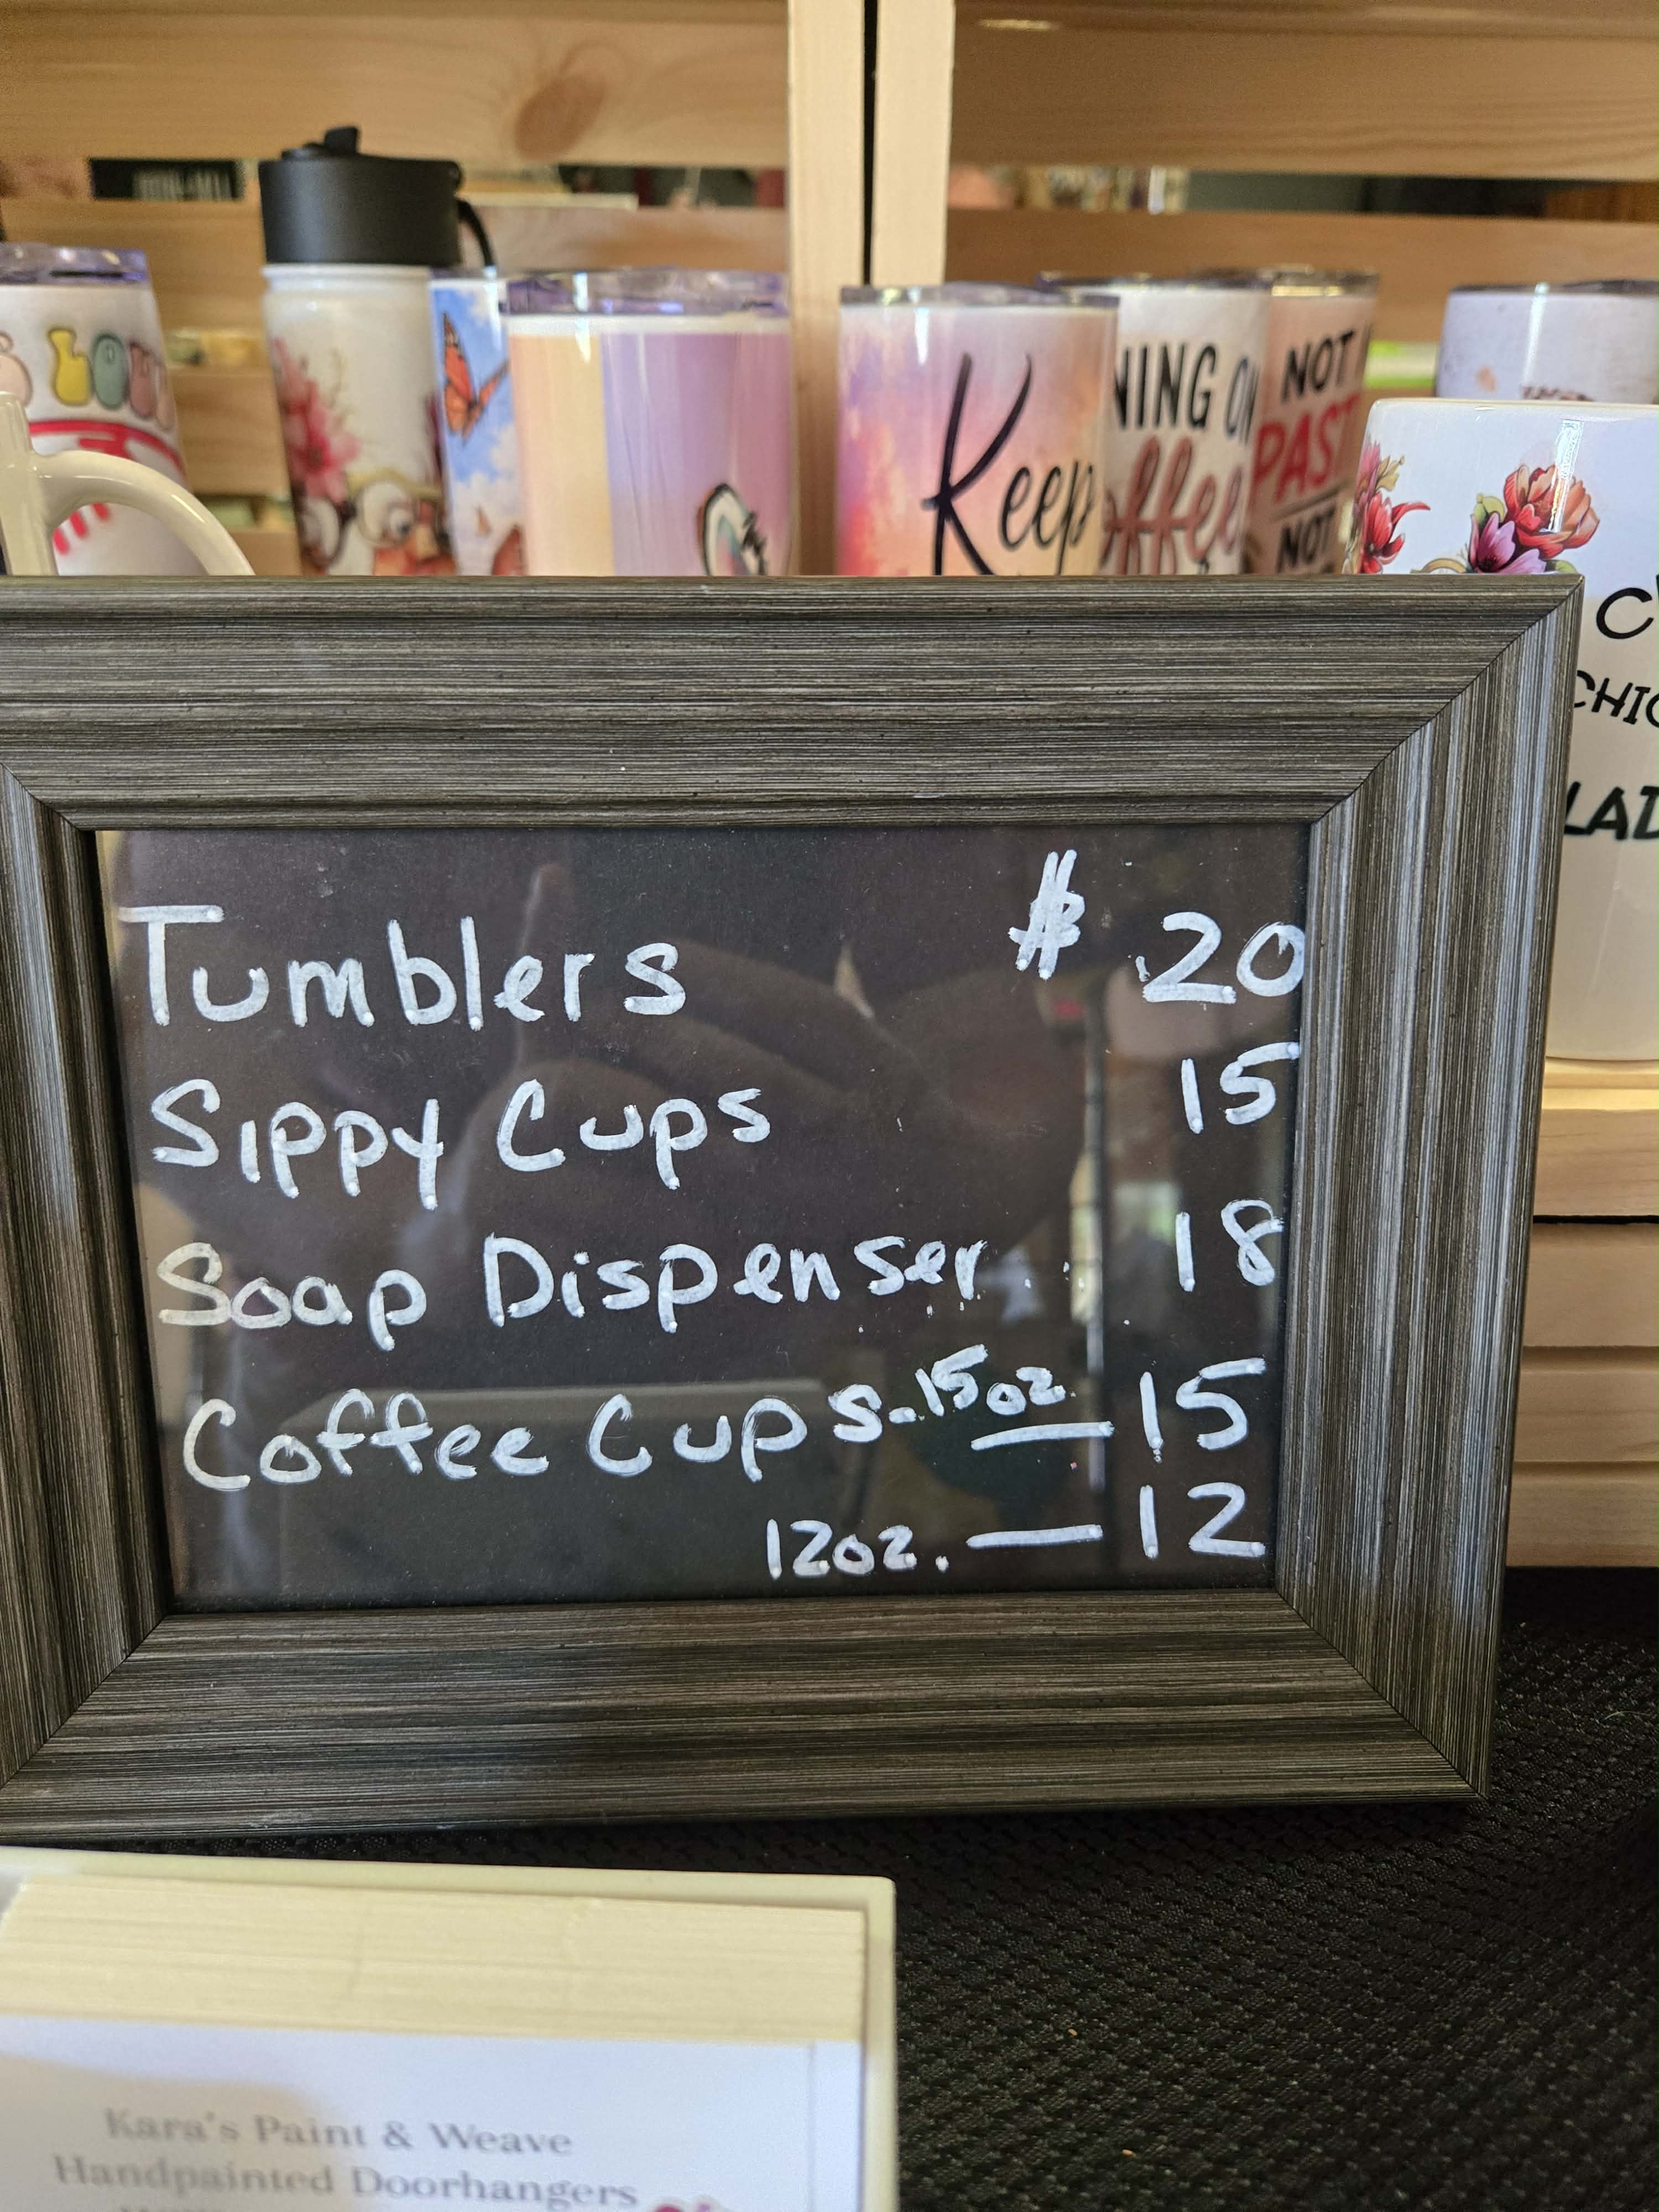 Keep
coffee
NOT
PAST
NOT
Tumblers $ 20
Sippy Cups 15
Soap Dispenser 18
Coffee Cups. 15oz. — 15
12oz. — 12
Kara's Paint & Weave
Handpainted Doorhangers